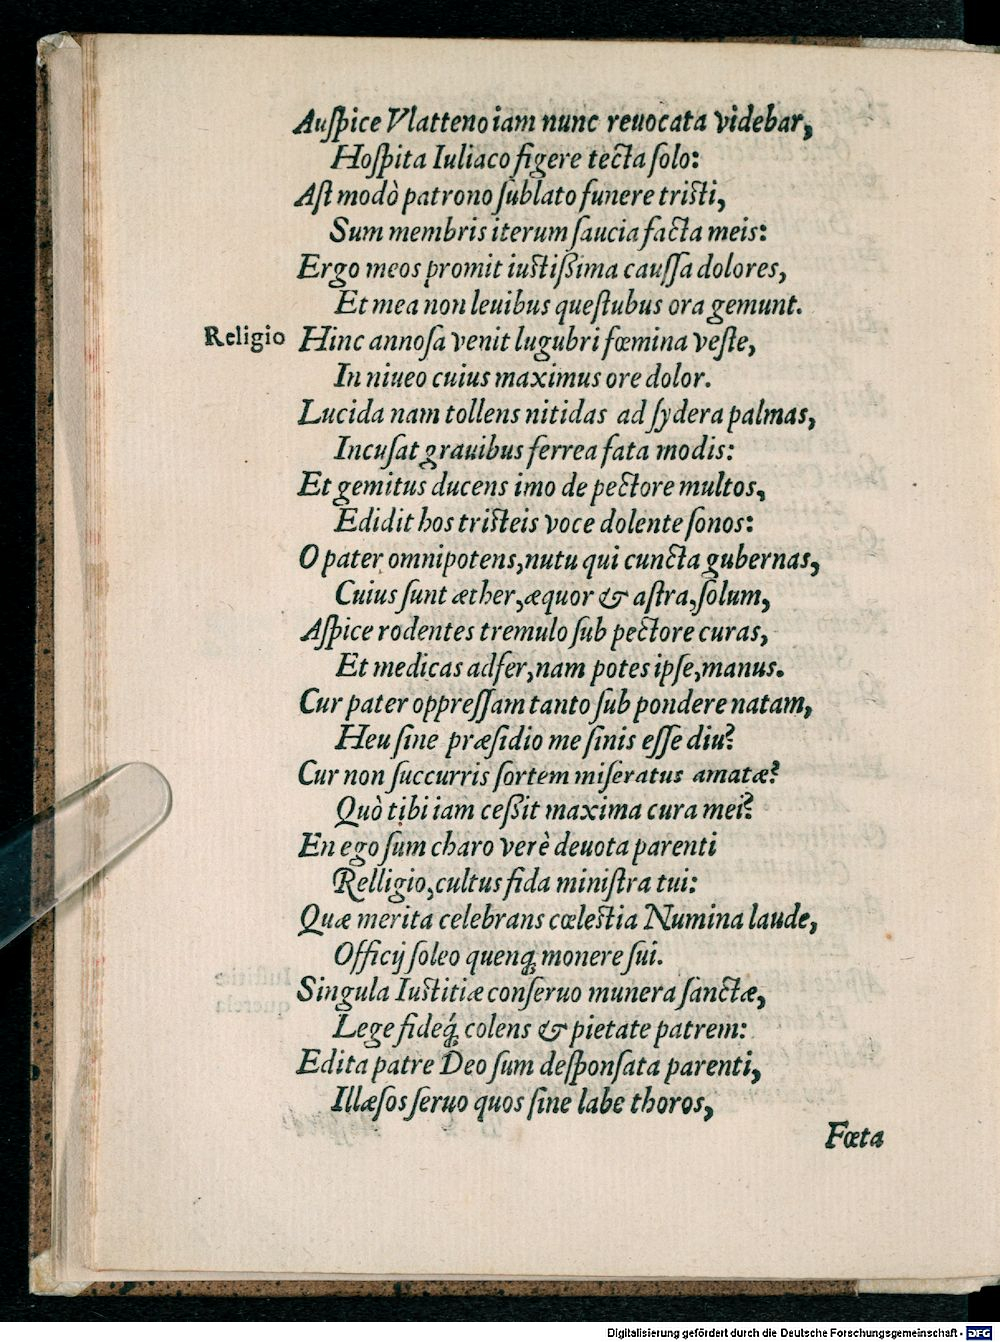 Auſpice Vlatteno iam nunc reuocata videbar,
Hoſpita Iuliaco figere tecta ſolo:
Aſt modò patrono ſublato funere triſti,
Sum membris iterum ſaucia facta meis:
Ergo meos promit iuſtiſsima cauſſa dolores,
Et mea non leuibus queſtubus ora gemunt.
Religio Hinc annoſa venit lugubri fœmina veſte,
In niueo cuius maximus ore dolor.
Lucida nam tollens nitidas ad ſydera palmas,
Incuſat grauibus ferrea fata modis:
Et gemitus ducens imo de pectore multos,
Edidit hos triſteis voce dolente ſonos:
O pater omnipotens, nutu qui cuncta gubernas,
Cuius ſunt æther, æquor & aſtra, ſolum,
Aſpice rodentes tremulo ſub pectore curas,
Et medicas adfer, nam potes ipſe, manus.
Cur pater oppreſſam tanto ſub pondere natam,
Heu ſine præſidio me ſinis eſſe diu?
Cur non ſuccurris ſortem miſeratus amatæ?
Quò tibi iam ceſsit maxima cura mei?
En ego ſum charo verè deuota parenti
Relligio, cultus fida miniſtra tui:
Quæ merita celebrans cœleſtia Numina laude,
Officij ſoleo quenq; monere ſui.
Singula Iuſtitiæ conſeruo munera ſanctæ,
Lege fideq́; colens & pietate patrem:
Edita patre Deo ſum deſponſata parenti,
Illæſos ſeruo quos ſine labe thoros,
Fœta
Digitalisierung gefördert durch die Deutsche Forschungsgemeinschaft - DFG